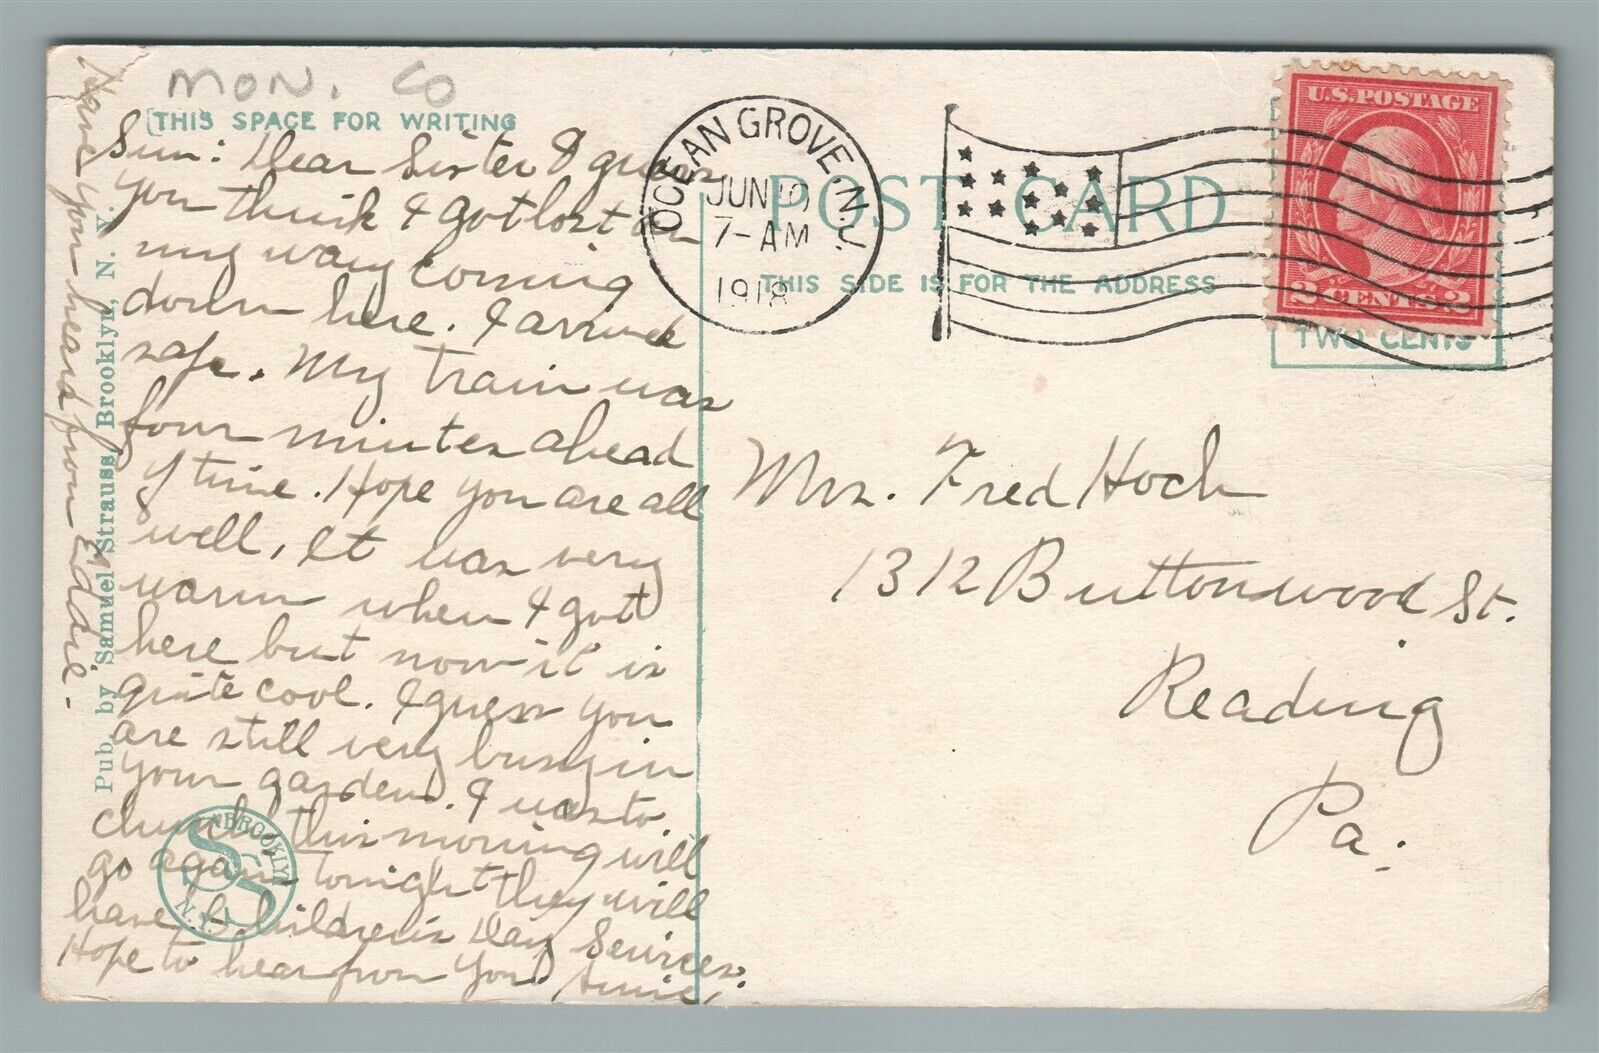 MON. CO
THIS SPACE FOR WRITING
Sun: Dear Sister I guess
you think I got lost on
my way coming
down here. I arrived
safe. My train was
four minutes ahead
of time. Hope you are all
well, It was very
warm when I got
here but now it is
quite cool. I guess you
are still very busy in
your garden. I was to
church this morning will
go again tonight they will
have Children's Day Services.
Hope to hear from you. Annie.
Have you heard from Eddie.
Pub. by Samuel Strauss, Brooklyn, N. Y.
BROOKLYN
N.Y.
SS
OCEAN GROVE, N.J.
JUN 10
7-AM
1918
POST CARD
THIS SIDE IS FOR THE ADDRESS
U.S.POSTAGE
2 CENTS 2
TWO CENTS
Mrs. Fred Hoch
1312 Buttonwood St.
Reading
Pa.